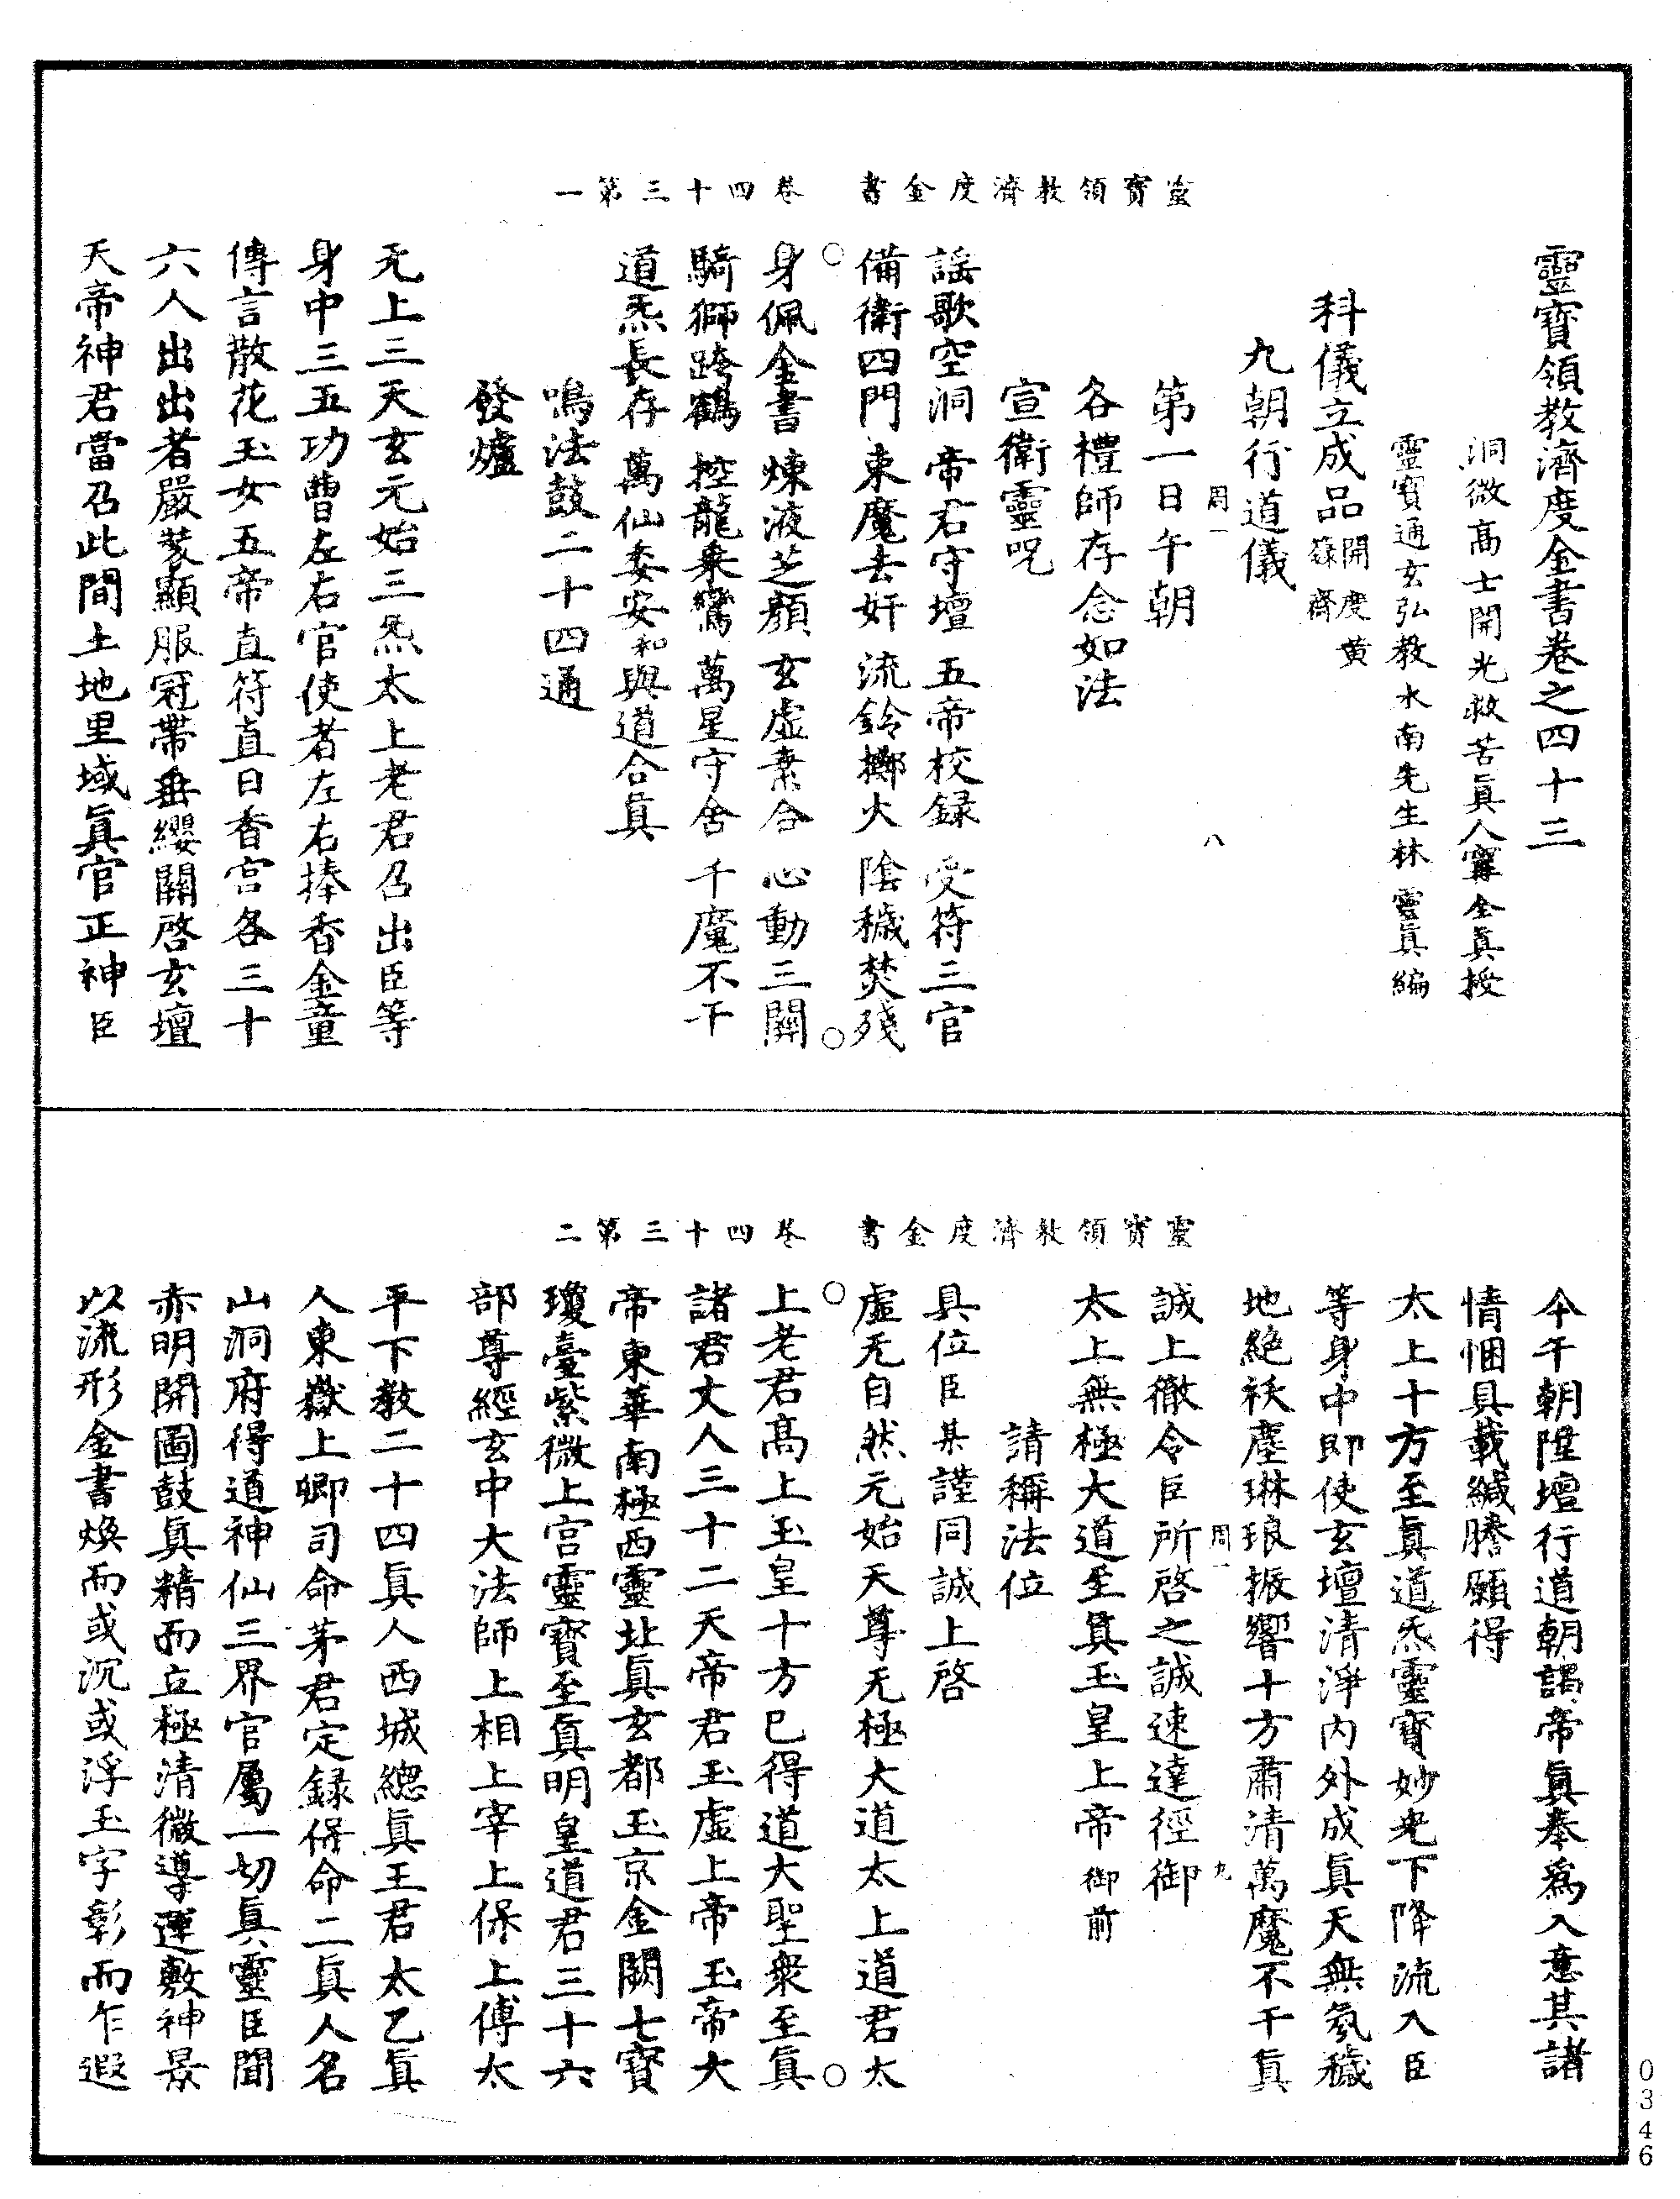 靈寶領教濟度金書卷之四十三
洞微高士開光救苦眞人寗全眞授
靈寶通玄弘教水南先生林靈眞編
科儀立成品開度黃籙齋
九朝行道儀
周一
八
第一日午朝
各禮師存念如法
宣衛靈呪
謡歌空洞 帝君守壇 五帝校録 受符三官
備衛四門 束魔去奸 流鈴擲火 陰穢焚殘
身佩金書 煉液芝顏 玄虛素合 心動三關
騎獅跨鶴 控龍乘鸞 萬星守舍 千魔不干
道炁長存 萬仙委安和與道合眞
鳴法鼓二十四通
發爐
无上三天玄元始三炁太上老君召出臣等
身中三五功曹左右官使者左右捧香金童
傳言散花玉女五帝直符直日香官各三十
六人出出者嚴裝顯服冠帶垂纓關啓玄壇
天帝神君當召此間土地里域眞官正神臣
靈寶領教濟度金書 卷四十三第一
今千朝陞壇行道朝謁帝眞奉爲入意其諸
情悃具載緘謄願得
太上十方至眞道炁靈寶妙光下降流入臣
等身中即使玄壇清淨内外成眞天無氛穢
地絶袄塵琳琅振響十方肅清萬魔不干眞
周一
九
誠上徹令臣所啓之誠速達徑御
太上無極大道至眞玉皇上帝御前
請稱法位
具位臣某謹同誠上啓
虛无自然元始天尊无極大道太上道君太
上老君高上玉皇十方已得道大聖衆至眞
諸君丈人三十二天帝君玉虛上帝玉帝大
帝東華南極西靈北眞玄都玉京金闕七寶
瓊臺紫微上宫靈寶至眞明皇道君三十六
部尊經玄中大法師上相上宰上保上傅太
平下教二十四眞人西城總眞王君太乙眞
人東嶽上卿司命茅君定録保命二眞人名
山洞府得道神仙三界官屬一切眞靈臣聞
赤明開圖鼓眞精而立極清微導運敷神景
以流形金書焕而或沉或浮玉字彰而乍遐
靈寶領教濟度金書 卷四十三第二
0346